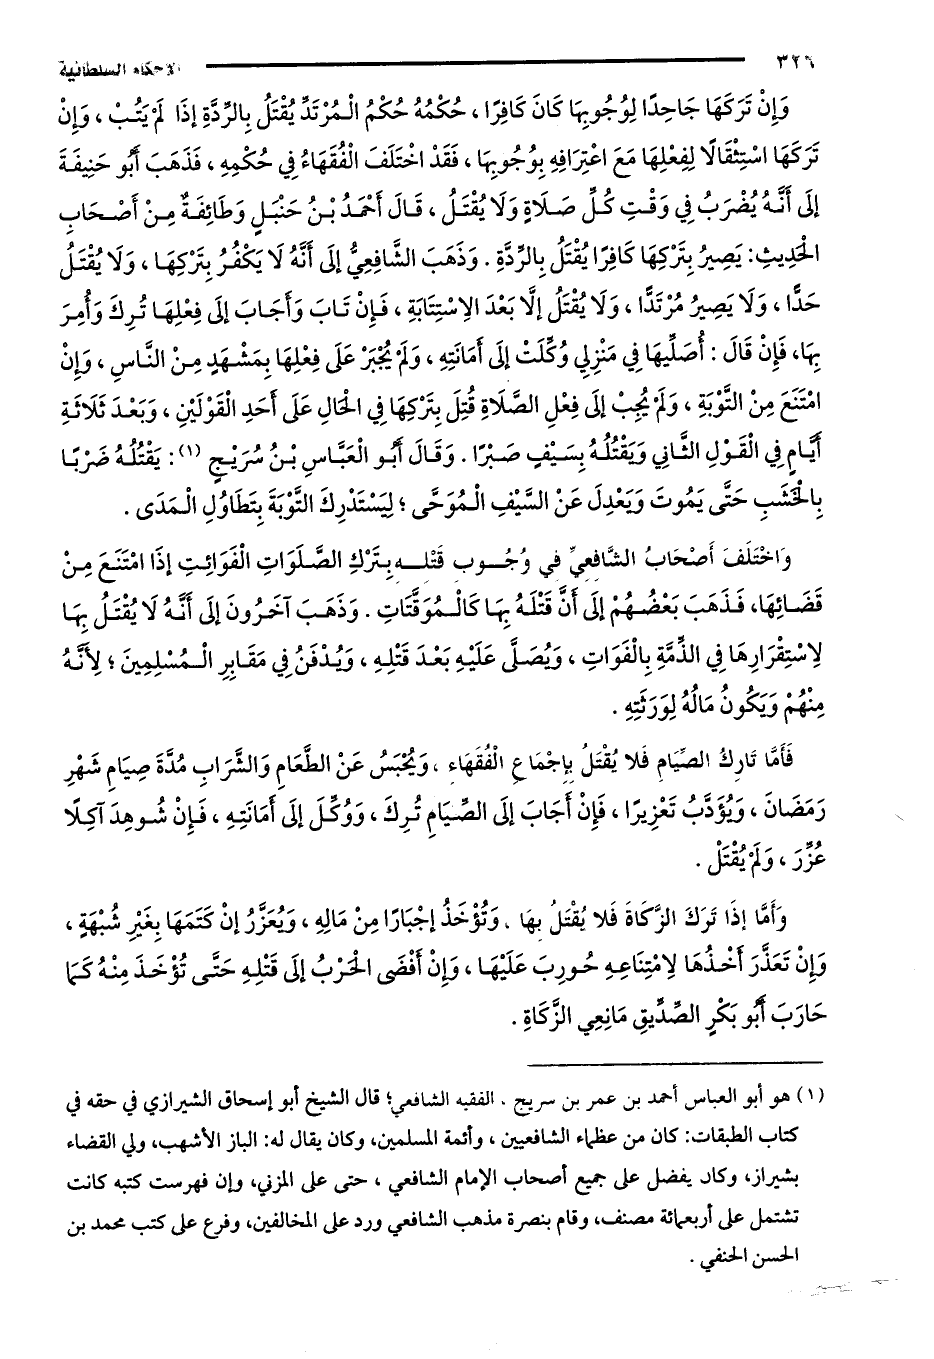 ٣٢٦ الأحكام السلطانية
وَإِنْ تَرَكَهَا جَاحِدًا لِوُجُوبِهَا كَانَ كَافِرًا ، حُكْمُهُ حُكْمُ الْمُرْتَدِّ يُقْتَلُ بِالرِّدَّةِ إِذَا لَمْ يَتُبْ ، وَإِنْ
تَرَكَهَا اسْتِثْقَالًا لِفِعْلِهَا مَعَ اعْتِرَافِهِ بِوُجُوبِهَا ، فَقَدْ اخْتَلَفَ الْفُقَهَاءُ فِي حُكْمِهِ ، فَذَهَبَ أَبُو حَنِيفَةَ
إِلَى أَنَّهُ يُضْرَبُ فِي وَقْتِ كُلِّ صَلَاةٍ وَلَا يُقْتَلُ ، قَالَ أَحْمَدُ بْنُ حَنْبَلٍ وَطَائِفَةٌ مِنْ أَصْحَابِ
الْحَدِيثِ: يَصِيرُ بِتَرْكِهَا كَافِرًا يُقْتَلُ بِالرِّدَّةِ . وَذَهَبَ الشَّافِعِيُّ إِلَى أَنَّهُ لَا يَكْفُرُ بِتَرْكِهَا ، وَلَا يُقْتَلُ
حَدًّا ، وَلَا يَصِيرُ مُرْتَدًّا ، وَلَا يُقْتَلُ إِلَّا بَعْدَ الِاسْتِتَابَةِ ، فَإِنْ تَابَ وَأَجَابَ إِلَى فِعْلِهَا تُرِكَ وَأُمِرَ
بِهَا، فَإِنْ قَالَ : أُصَلِّيهَا فِي مَنْزِلِي وُكِّلَتْ إِلَى أَمَانَتِهِ ، وَلَمْ يُجْبَرْ عَلَى فِعْلِهَا بِمَشْهَدٍ مِنْ النَّاسِ ، وَإِنْ
امْتَنَعَ مِنْ التَّوْبَةِ ، وَلَمْ يُجِبْ إِلَى فِعْلِ الصَّلَاةِ قُتِلَ بِتَرْكِهَا فِي الْحَالِ عَلَى أَحَدِ الْقَوْلَيْنِ ، وَبَعْدَ ثَلَاثَةِ
أَيَّامٍ فِي الْقَوْلِ الثَّانِي وَيَقْتُلُهُ بِسَيْفٍ صَبْرًا . وَقَالَ أَبُو الْعَبَّاسِ بْنُ سُرَيْجٍ (١) : يَقْتُلُهُ ضَرْبًا
بِالْخَشَبِ حَتَّى يَمُوتَ وَيَعْدِلَ عَنْ السَّيْفِ الْمُوَحَّى ؛ لِيَسْتَدْرِكَ التَّوْبَةَ بِتَطَاوُلِ الْمَدَى .
وَاخْتَلَفَ أَصْحَابُ الشَّافِعِيِّ فِي وُجُوبِ قَتْلِهِ بِتَرْكِ الصَّلَوَاتِ الْفَوَائِتِ إِذَا امْتَنَعَ مِنْ
قَضَائِهَا، فَذَهَبَ بَعْضُهُمْ إِلَى أَنَّ قَتْلَهُ بِهَا كَالْمُوَقَّتَاتِ . وَذَهَبَ آخَرُونَ إِلَى أَنَّهُ لَا يُقْتَلُ بِهَا
لِاسْتِقْرَارِهَا فِي الذِّمَّةِ بِالْفَوَاتِ ، وَيُصَلَّى عَلَيْهِ بَعْدَ قَتْلِهِ ، وَيُدْفَنُ فِي مَقَابِرِ الْمُسْلِمِينَ ؛ لِأَنَّهُ
مِنْهُمْ وَيَكُونُ مَالُهُ لِوَرَثَتِهِ .
فَأَمَّا تَارِكُ الصِّيَامِ فَلَا يُقْتَلُ بِإِجْمَاعِ الْفُقَهَاءِ ، وَيُحْبَسُ عَنْ الطَّعَامِ وَالشَّرَابِ مُدَّةَ صِيَامِ شَهْرِ
رَمَضَانَ ، وَيُؤَدَّبُ تَعْزِيرًا ، فَإِنْ أَجَابَ إِلَى الصِّيَامِ تُرِكَ ، وَوُكِّلَ إِلَى أَمَانَتِهِ ، فَإِنْ شُوهِدَ آكِلًا
عُزِّرَ ، وَلَمْ يُقْتَلْ .
وَأَمَّا إِذَا تَرَكَ الزَّكَاةَ فَلَا يُقْتَلُ بِهَا . وَتُؤْخَذُ إِجْبَارًا مِنْ مَالِهِ ، وَيُعَزَّرُ إِنْ كَتَمَهَا بِغَيْرِ شُبْهَةٍ ،
وَإِنْ تَعَذَّرَ أَخْذُهَا لِامْتِنَاعِهِ حُورِبَ عَلَيْهَا ، وَإِنْ أَفْضَى الْحَرْبُ إِلَى قَتْلِهِ حَتَّى تُؤْخَذَ مِنْهُ كَمَا
حَارَبَ أَبُو بَكْرٍ الصِّدِّيقِ مَانِعِي الزَّكَاةِ .
(١) هو أبو العباس أحمد بن عمر بن سريج . الفقيه الشافعي؛ قال الشيخ أبو إسحاق الشيرازي في حقه في
كتاب الطبقات: كان من عظماء الشافعيين ، وأئمة المسلمين، وكان يقال له: الباز الأشهب، ولي القضاء
بشيراز، وكان يفضل على جميع أصحاب الإمام الشافعي ، حتى على المزني، وإن فهرست كتبه كانت
تشتمل على أربعمائة مصنف، وقام بنصرة مذهب الشافعي ورد على المخالفين، وفرع على كتب محمد بن
الحسن الحنفي .